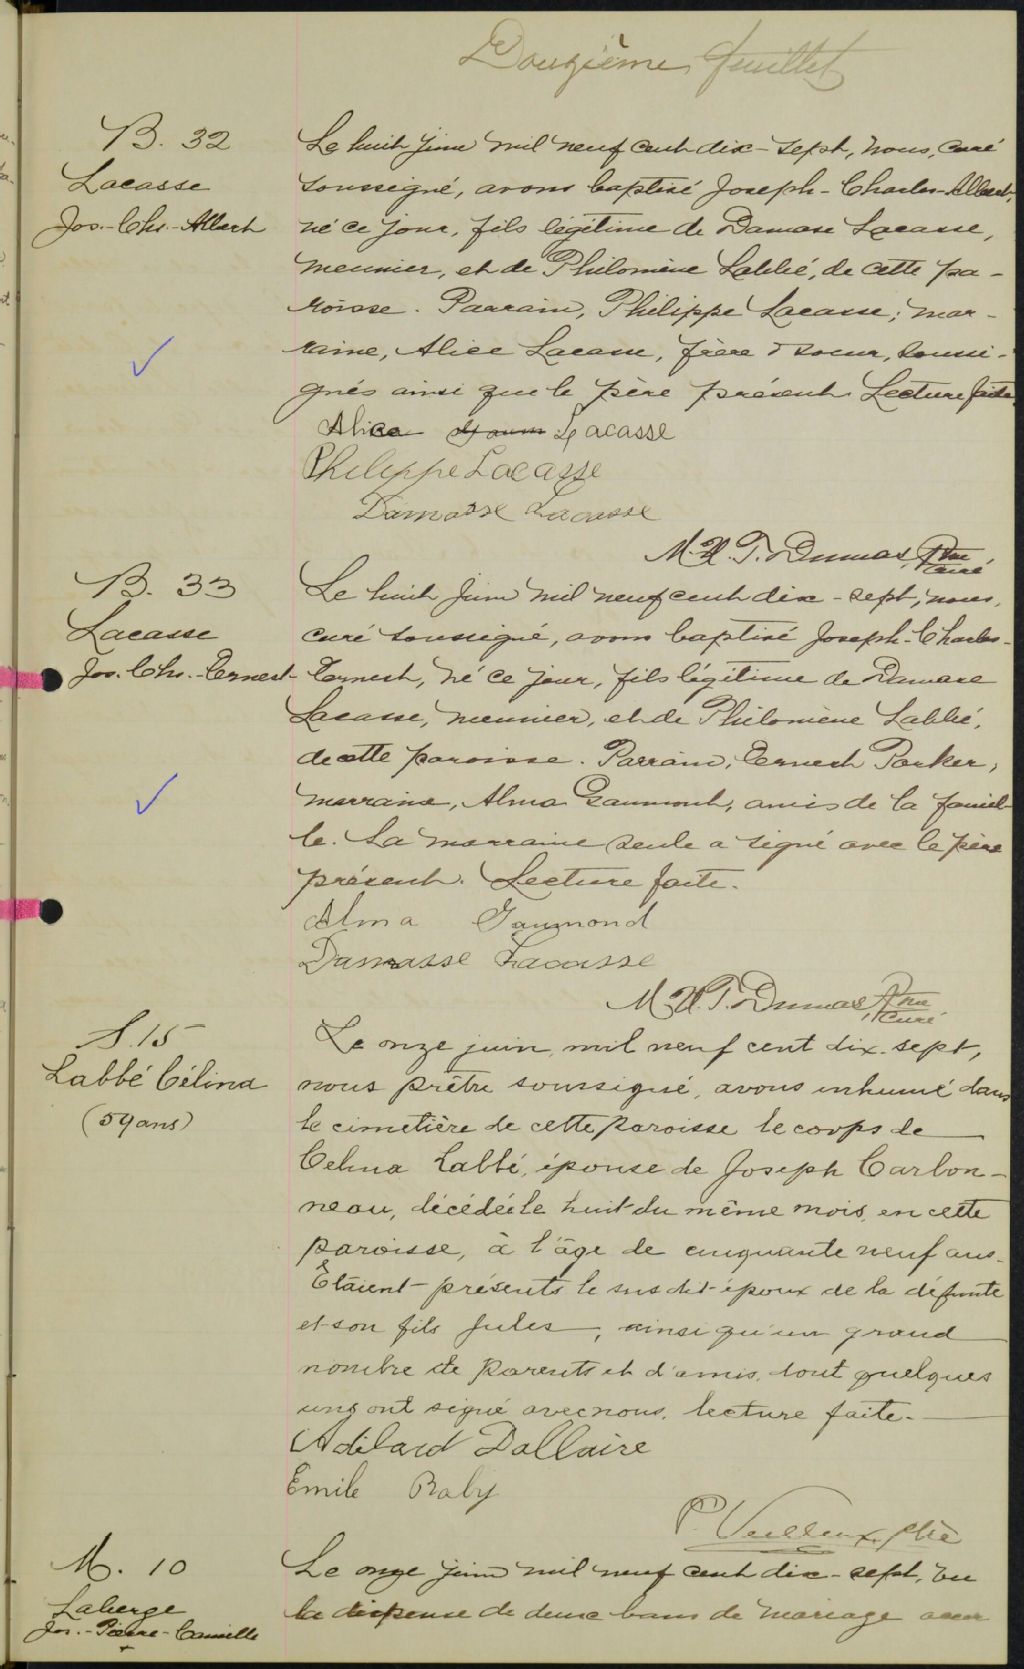 Douzième feuillet
B. 32
Lacasse
Jos.-Chs.-Albert
Le huit juin mil neuf cent dix-sept, nous, curé
soussigné, avons baptisé Joseph-Charles-Albert,
né ce jour, fils légitime de Damase Lacasse,
meunier, et de Philomène Labbé, de cette pa-
roisse. Parrain, Philippe Lacasse; mar-
raine, Alice Lacasse, frère & soeur, soussi-
gnés ainsi que le père présent. Lecture faite.
Alice Lacasse
Philippe Lacasse
Damasse Lacasse
M. H. T. Dumas, Ptre
curé
B. 33
Lacasse
Jos. Chs.-Ernest
Le huit juin mil neuf cent dix-sept, nous,
curé soussigné, avons baptisé Joseph-Charles-
Ernest, né ce jour, fils légitime de Damase
Lacasse, meunier, et de Philomène Labbé,
de cette paroisse. Parrain, Ernest Parker,
marraine, Alma Gaumont, amis de la famil-
le. La marraine seule a signé avec le père
présent. Lecture faite.
Alma Gaumond
Damasse Lacasse
M. H. T. Dumas, Ptre
curé
S. 15
Labbé Célina
(59 ans)
Le onze juin, mil neuf cent dix-sept,
nous prêtre soussigné, avons inhumé dans
le cimetière de cette paroisse le corps de
Celina Labbé, épouse de Joseph Carbon-
neau, décédée le huit du même mois, en cette
paroisse, à l'âge de cinquante neuf ans.
Étaient présents le susdit époux de la défunte
et son fils Jules, ainsi qu'un grand
nombre de parents et d'amis, dont quelques
uns ont signé avec nous. lecture faite.
Adélard Dallaire
Emile Baby
P. Veilleux, ptre
M. 10
Laberge
Jos.-Pierre-Camille
+
Le onze juin mil neuf cent dix-sept, vu
la dispense de deux bans de mariage accor